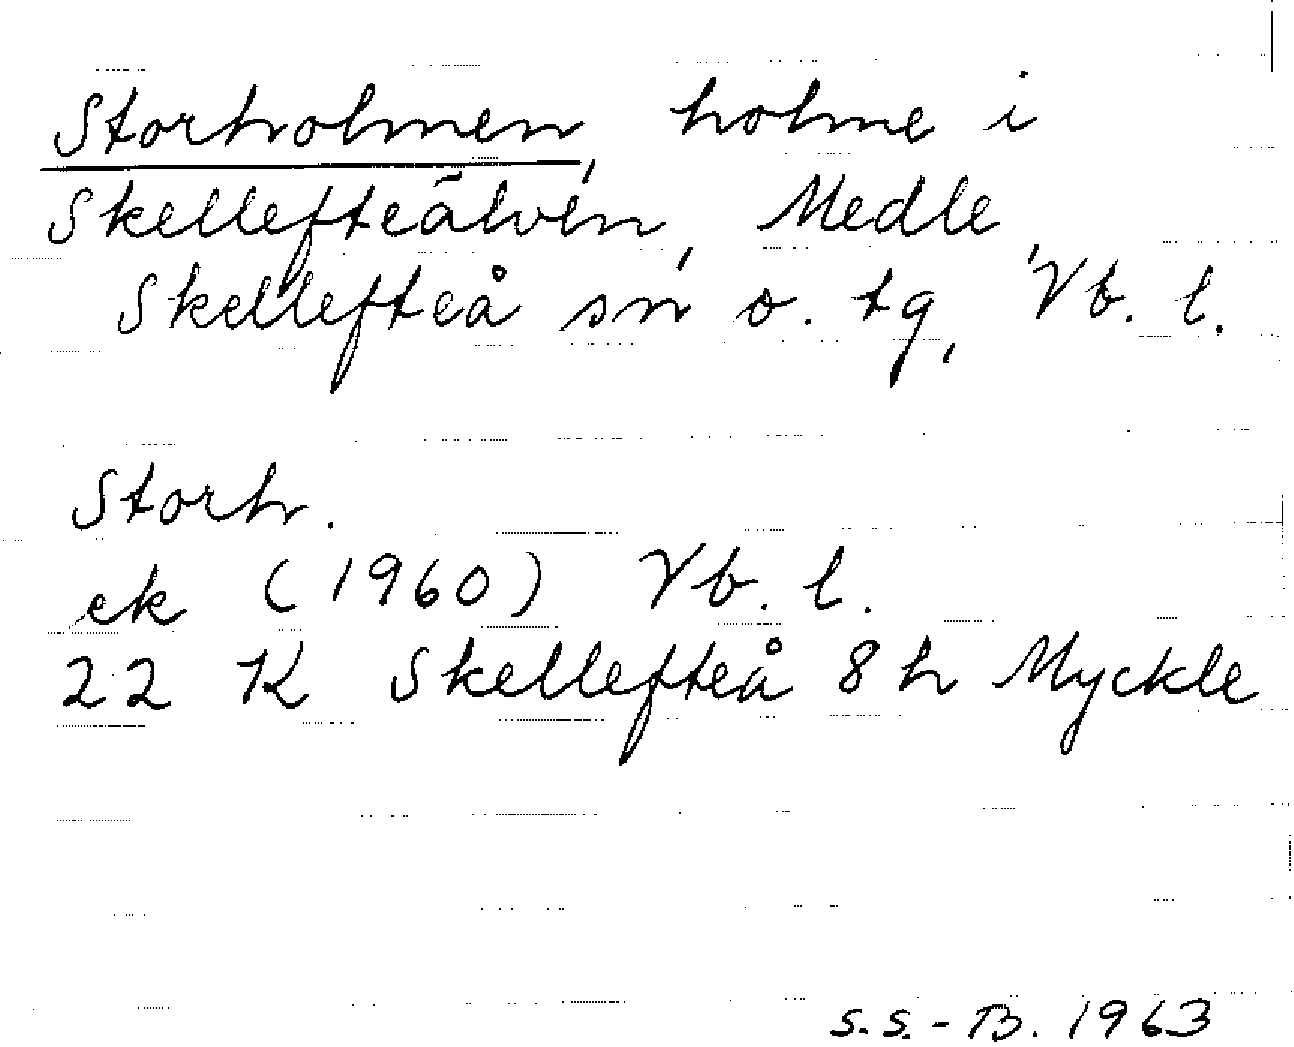 Storholmen, holme i
Skellefteälven, Medle,
Skellefteå sn o. tg, Vb. l.
Storh.
ek (1960) Vb. l.
22 K Skellefteå 8 h Myckle
S.S.-B. 1963